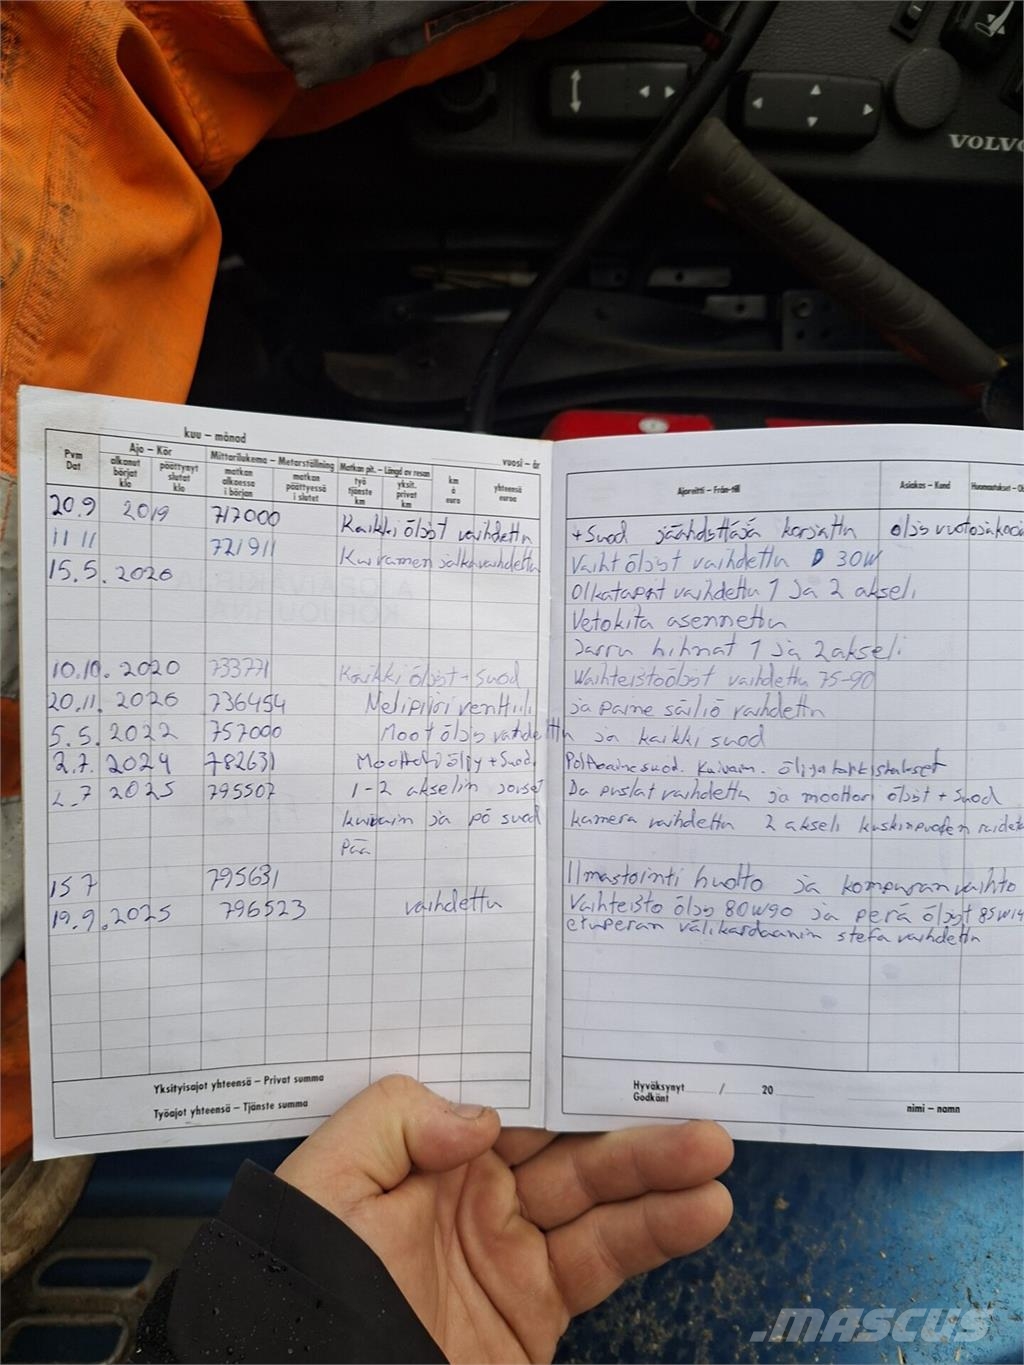 VOLVO
kuu – månad
vuosi – år
Pvm Dat
Ajo – Kör
alkanut börjat klo
päättynyt slutat klo
Mittarilukema – Metarställning
matkan alkaessa i börjen
matkan päättyessä i slutet
Matkan pit. – Längd av resan
työ tjänste km
yksit. privat km
km à euro
yhteensä euroa
Ajoreitti – Från-till
Asiakas – Kund
20.9 2019 717000 Kaikki öljyt vaihdettu + Suod jäähdyttäjä korjattu
11 11 721911 vaihdettu Vaiht öljyt vaihdettu 30W
15.5.2020 vaihdettu 1 ja 2 akseli
Vetokita asennettu
Jarru hihnat 1 ja 2 akseli
10.10.2020 733771 Kaikki öljyt + Suod Vaihteistoöljyt vaihdettu 75-90
20.11.2020 736454 Nelipiiri venttiili ja paine säiliö vaihdettu
5.5.2022 757000 Moot öljy vaihdettu ja kaikki suod
2.7.2024 782631 Moottori öljy + Suod. Polttoainesuod. Kuivain.
2.7 2025 795507 1-2 akselin Da puslat vaihdettu ja moottori öljyt + Suod
kuivain ja pö suod kamera vaihdettu 2 akseli
Pää
15 7 795631 Ilmastointi huolto ja kompuran vaihto
19.9.2025 796523 vaihdettu Vaihteisto öljy 80W90 ja perä öljyt
etuperan välikardaanin stefa vaihdettu
Yksityisajot yhteensä – Privat summa
Työajot yhteensä – Tjänste summa
Hyväksynyt Godkänt / 20
nimi – namn
.MASCUS